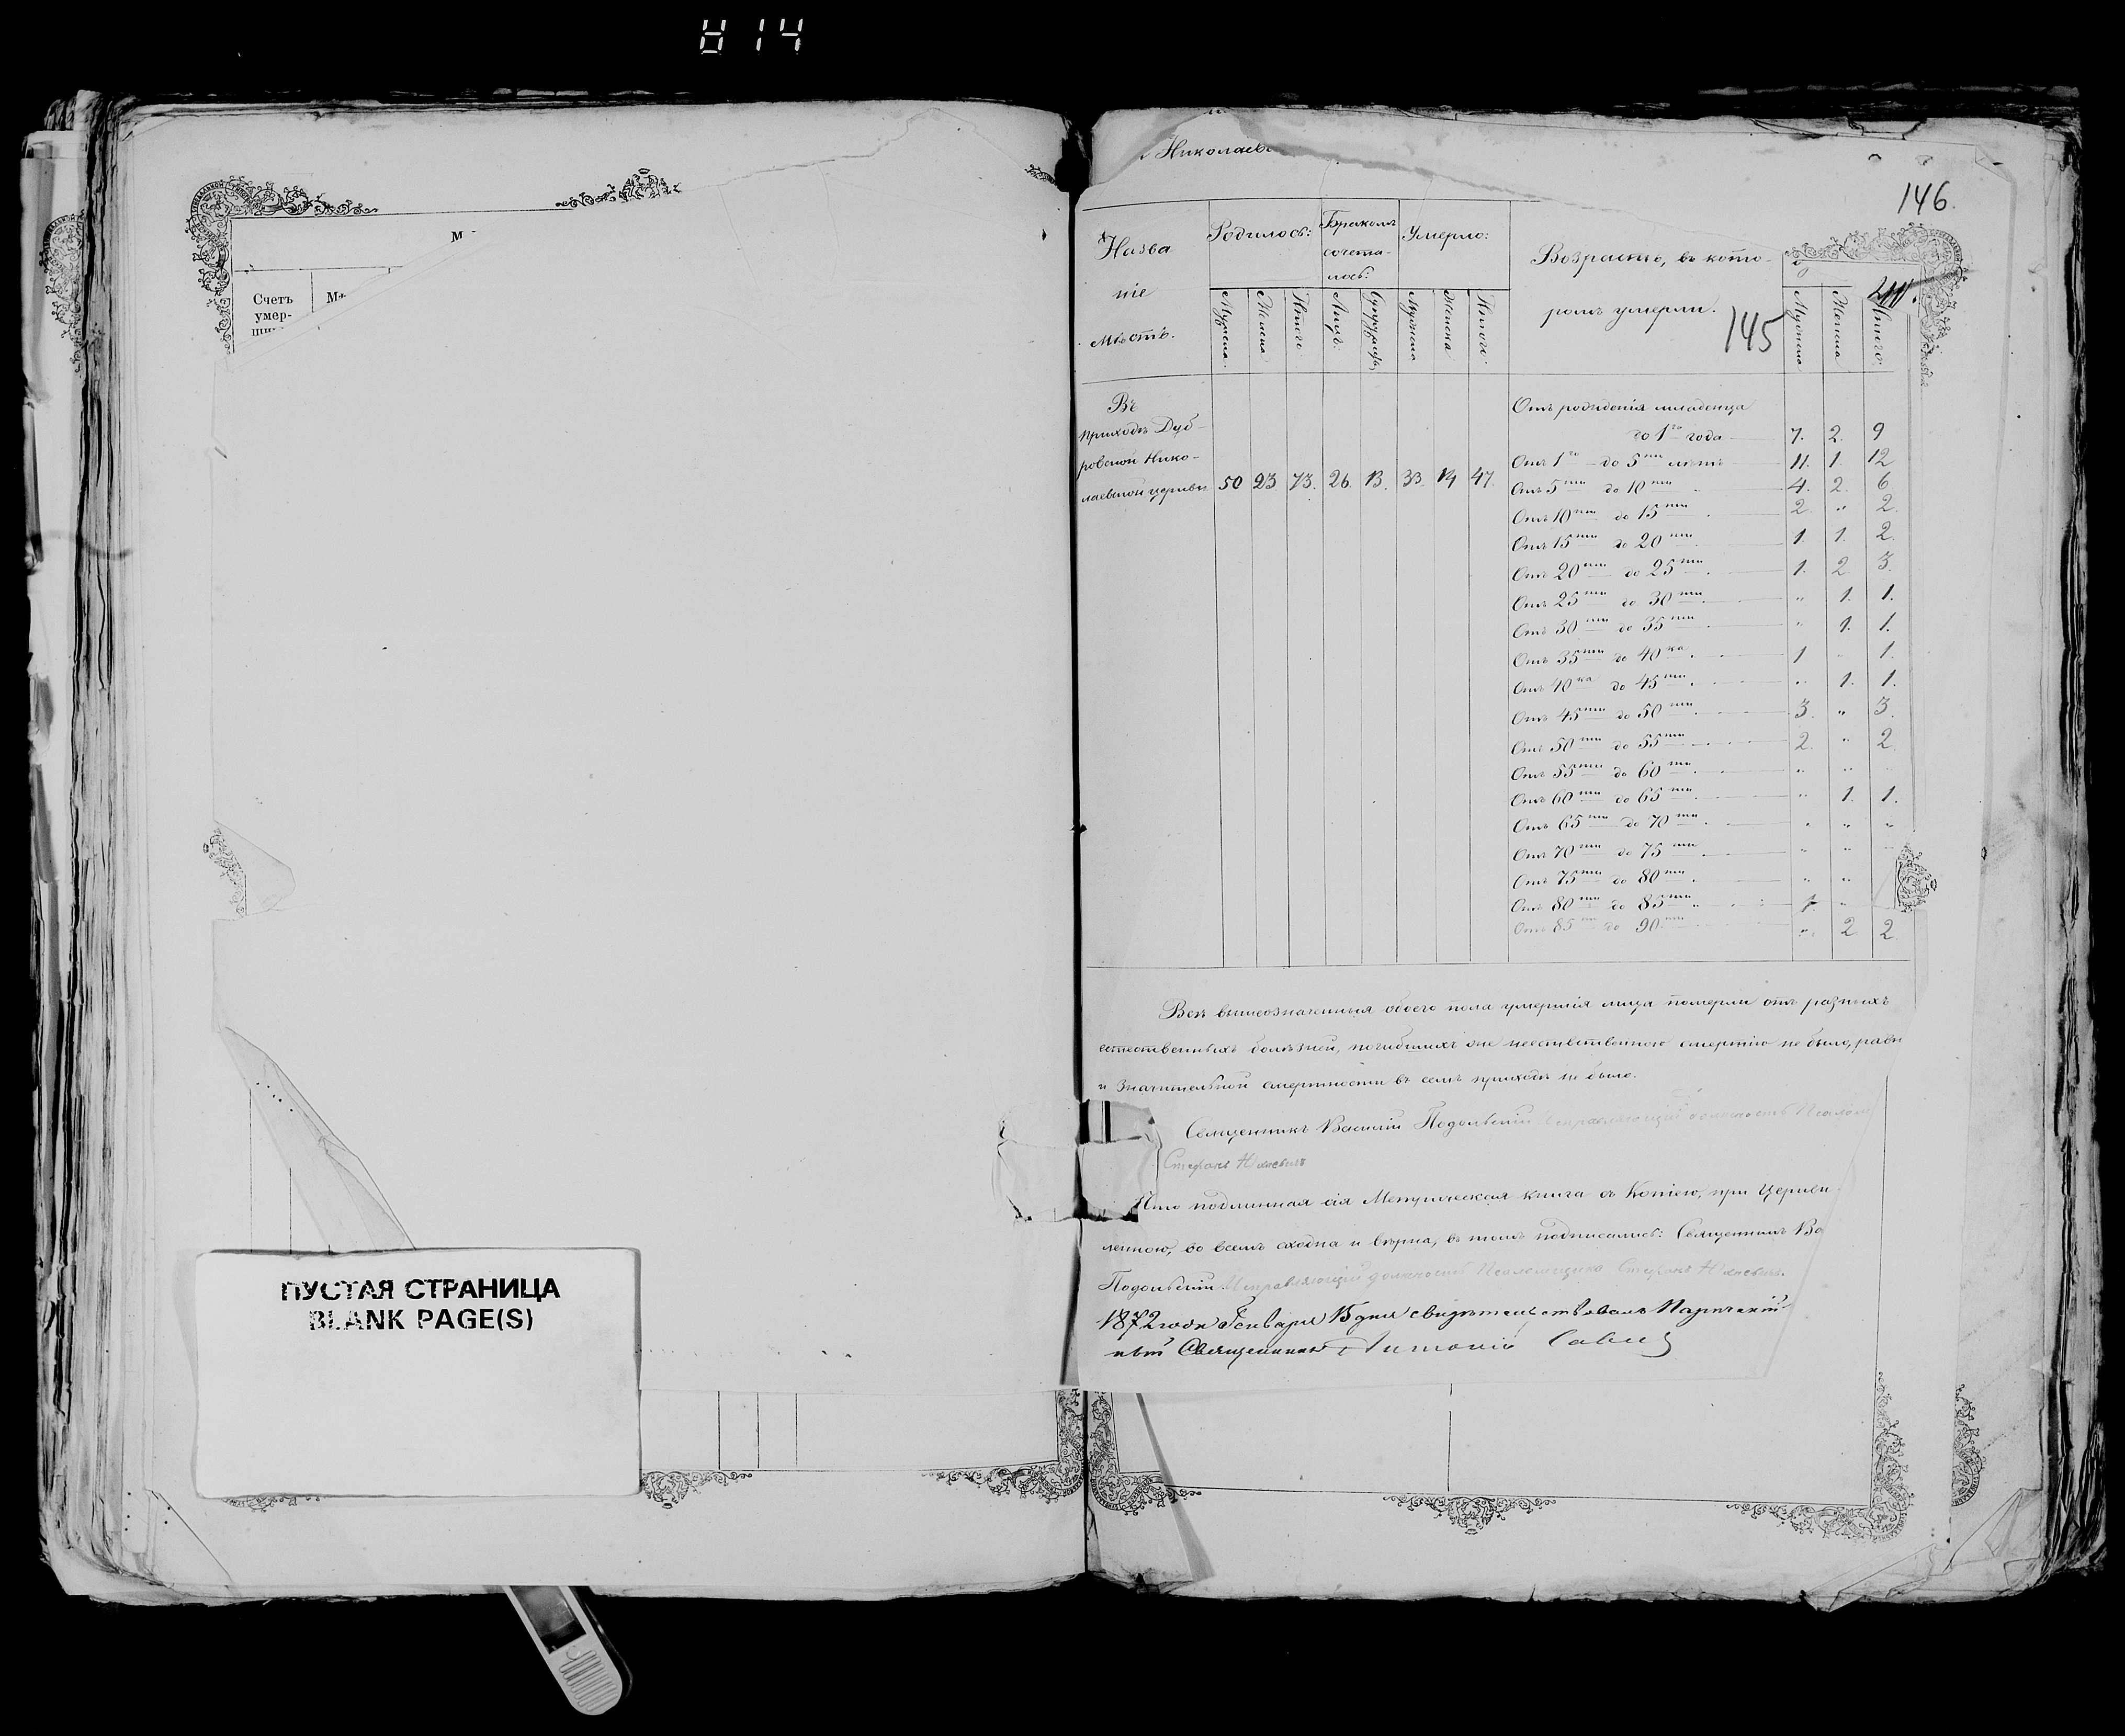 814
М
Счетъ
умер-
Николаев
146.
Назва
ніе
мѣстъ.
Родилось:
Бракомъ
сочета-
лось:
Умерло:
Возрастъ, въ кото-
ромъ умерли.
145
Мужеска.
Женска
Итого
Лицъ.
Супружествъ
Мужеска
Женска
Итого:
Мужеска
Женска
Итого:
Въ
приходѣ Дуб-
ровской Нико-
лаевской церкви
50 23 73. 26. 13. 33. 14 47.
Отъ рожденія младенца
до 1го года 7. 2. 9
Отъ 1го до 5ти лѣтъ 11. 1. 12
Отъ 5ти до 10ти 4. 2. 6
Отъ 10ти до 15ти 2. „ 2.
Отъ 15ти до 20ти 1. 1. 2.
Отъ 20ти до 25ти 1. 2. 3.
Отъ 25ти до 30ти „ 1. 1.
Отъ 30ти до 35ти „ 1. 1.
Отъ 35ти до 40ка 1 „ 1.
Отъ 40ка до 45ти „ 1. 1.
Отъ 45ти до 50ти 3. „ 3.
Отъ 50ти до 55ти 2. „ 2
Отъ 55ти до 60ти „ „ „
Отъ 60ти до 65ти „ 1. 1.
Отъ 65ти до 70ти „ „ „
Отъ 70ти до 75ти „ „ „
Отъ 75ти до 80ти „ „
Отъ 80ти до 85ти 1. „
Отъ 85ти до 90ти „ 2. 2
Всѣ вышеозначенныя обоего пола умершія лица померли отъ разныхъ
естественныхъ болѣзней, погибшихъ же неестественною смертію не было, равн
и значительной смертности въ семъ приходѣ не было.
Священникъ Василій Подольскій Исправляющій должность Псалом
Стефанъ
Что подлинная сія Метрическая книга съ Копіею, при Церкви
ленною, во всемъ сходна и вѣрна, въ томъ подписались: Священникъ Ва
Подольскій Исправляющій должность Псаломщика Стефанъ
1872 года Генваря 15 дня свидѣтельствовалъ
Священникъ Антоній Савич
ПУСТАЯ СТРАНИЦА
BLANK PAGE(S)